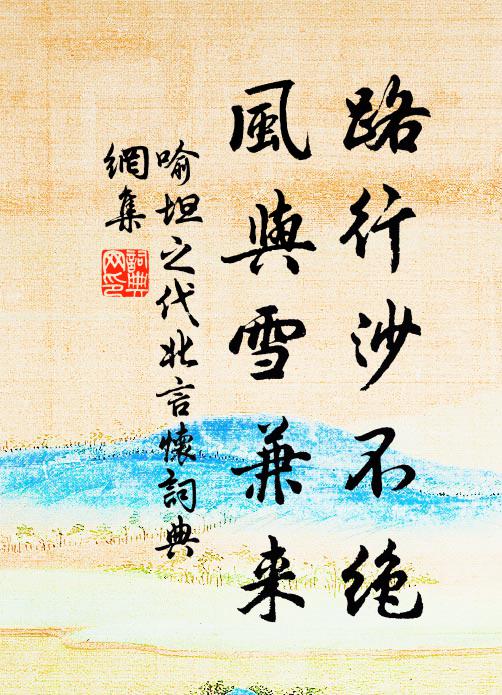 路行沙不绝
風與雪兼来
喻坦之代北言懷詞典
網集
詞典
网印